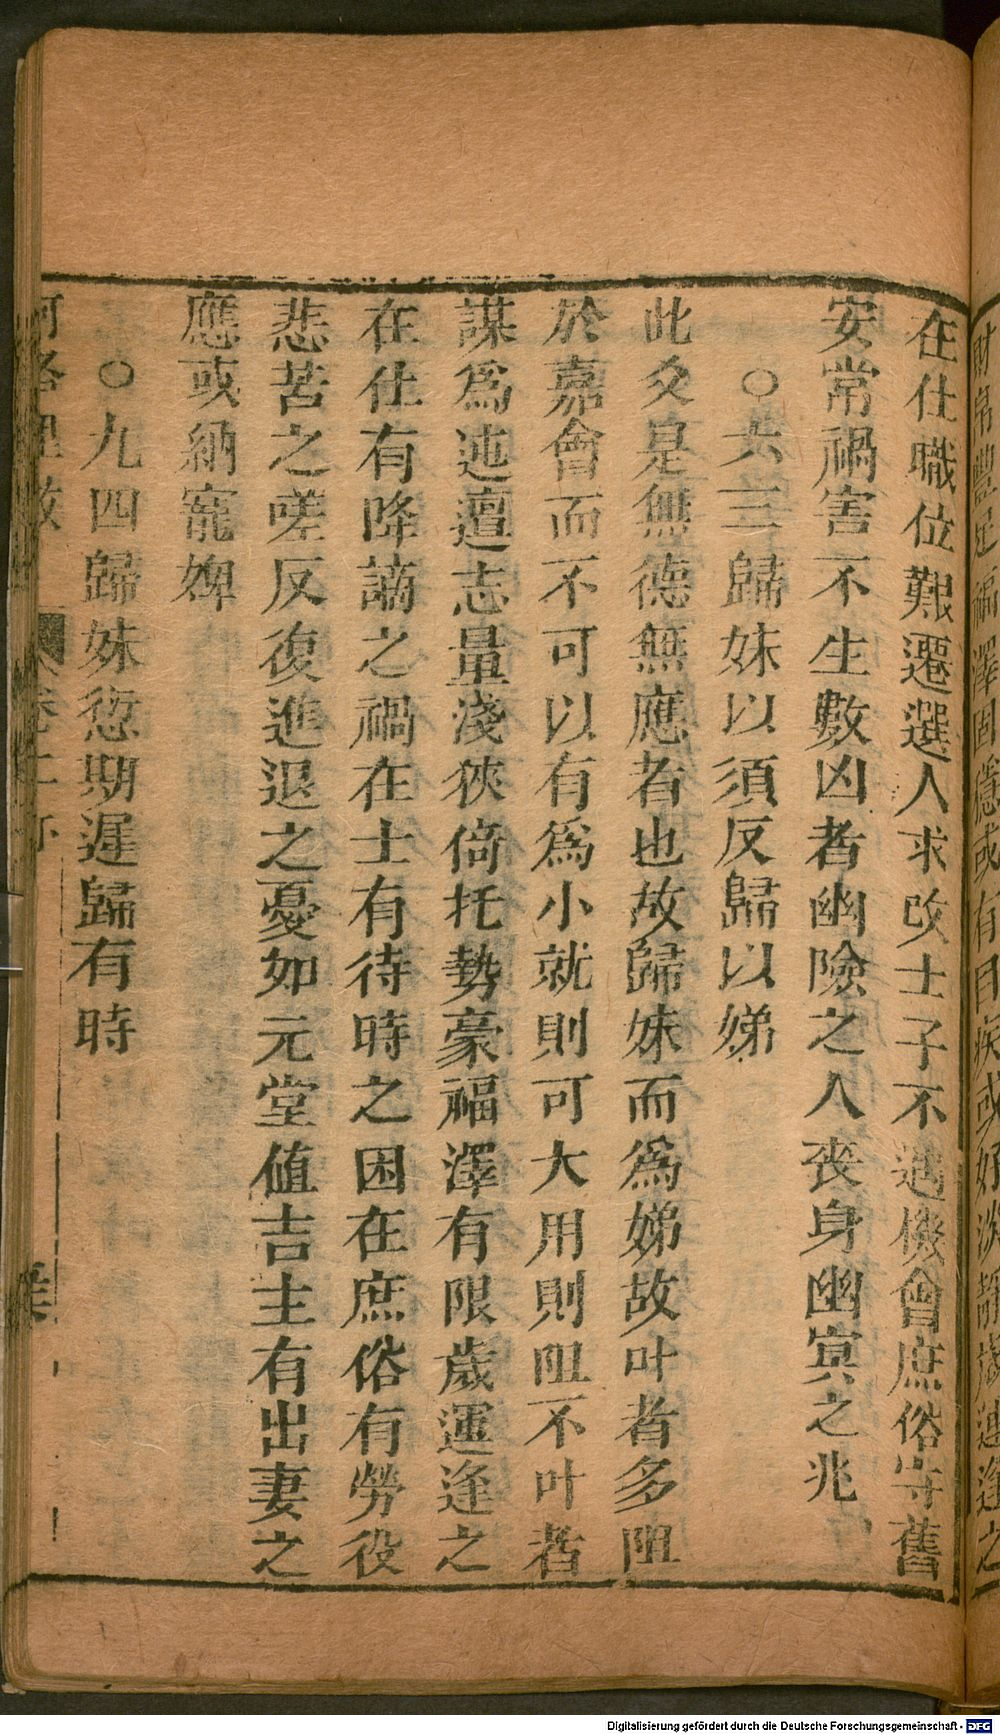 財帛豐足福澤固穩或有目疾或好淡靜歲運逢之
在仕職位艱遷選人求改士子不遇機會庶俗守舊
安常禍害不生數凶者幽險之人喪身幽寅之兆
○六三歸妹以須反歸以娣
此爻是無德無應者也故歸妹而為娣故叶者多阻
於嘉會而不可以有為小就則可大用則阻不叶者
謀為迍邅志量淺狹倚托勢豪福澤有限歲運逢之
在仕有降謫之禍在士有待時之困在庶俗有勞役
悲苦之嗟反復進退之憂如元堂值吉主有出妻之
應或納寵婢
○九四歸妹愆期遲歸有時
卷二下
Digitalisierung gefördert durch die Deutsche Forschungsgemeinschaft - DFG